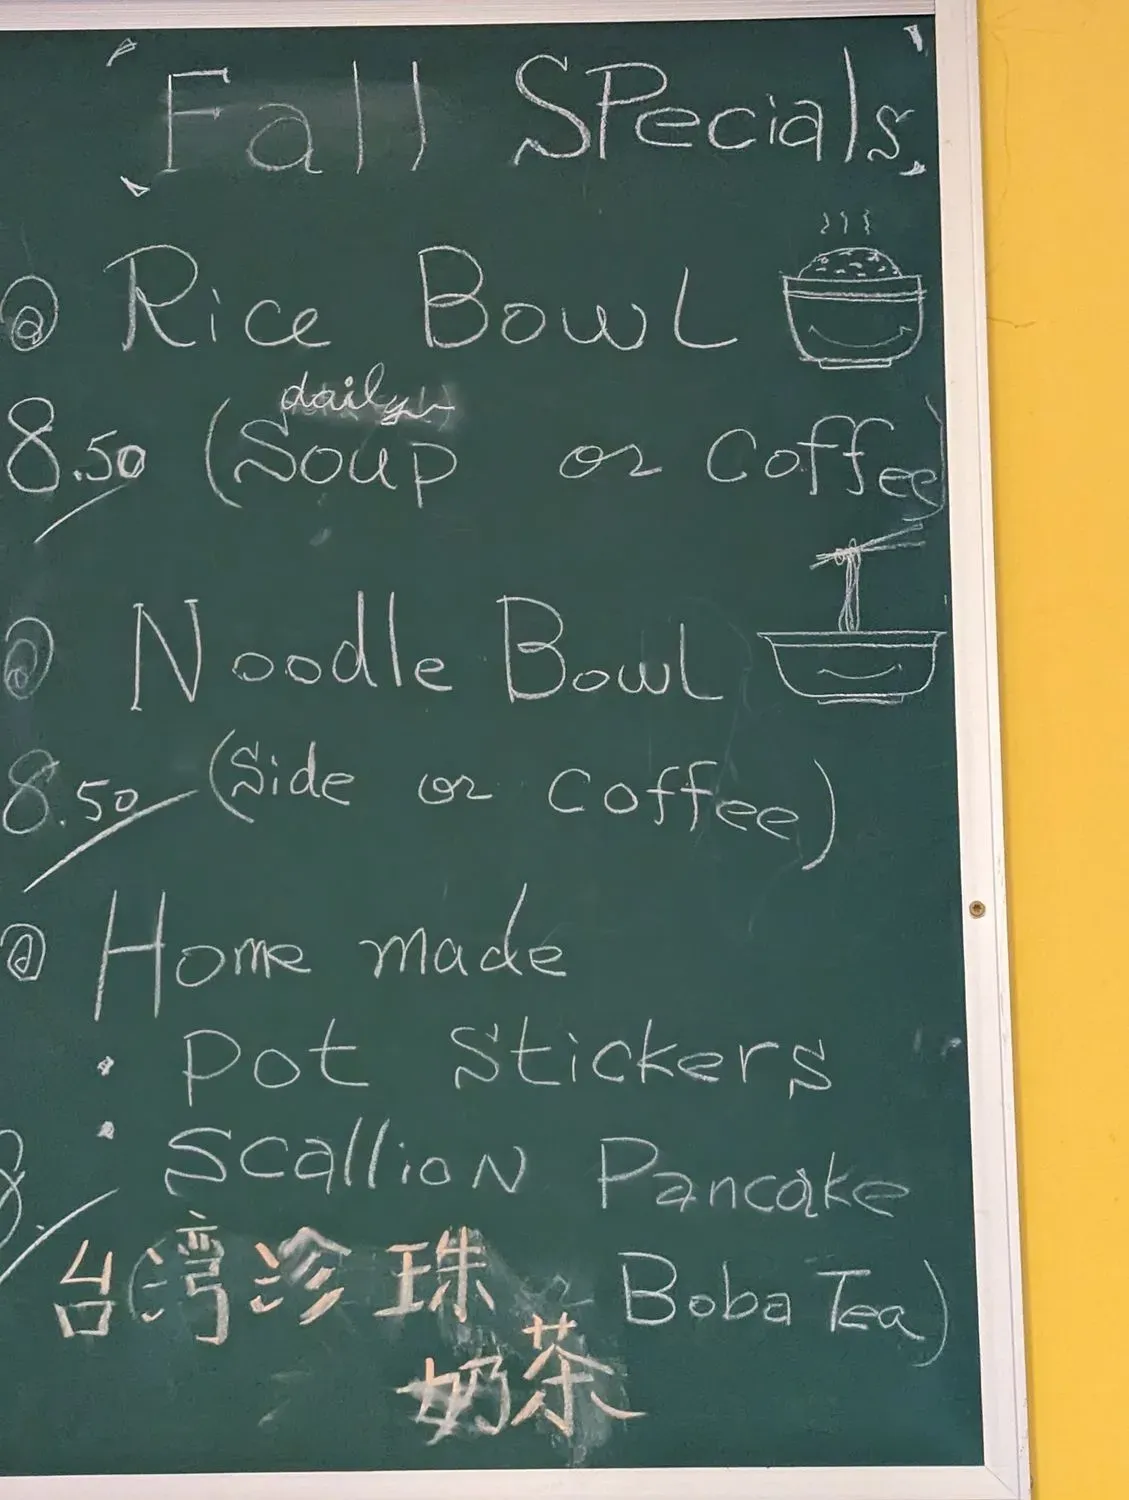 Fall SPecials
@ Rice Bowl
daily
8.50 (Soup or Coffee)
@ Noodle Bowl
8.50 (Side or Coffee)
@ Home made
• Pot Stickers
• Scallion Pancake
8.
台灣珍珠 Boba Tea)
奶茶